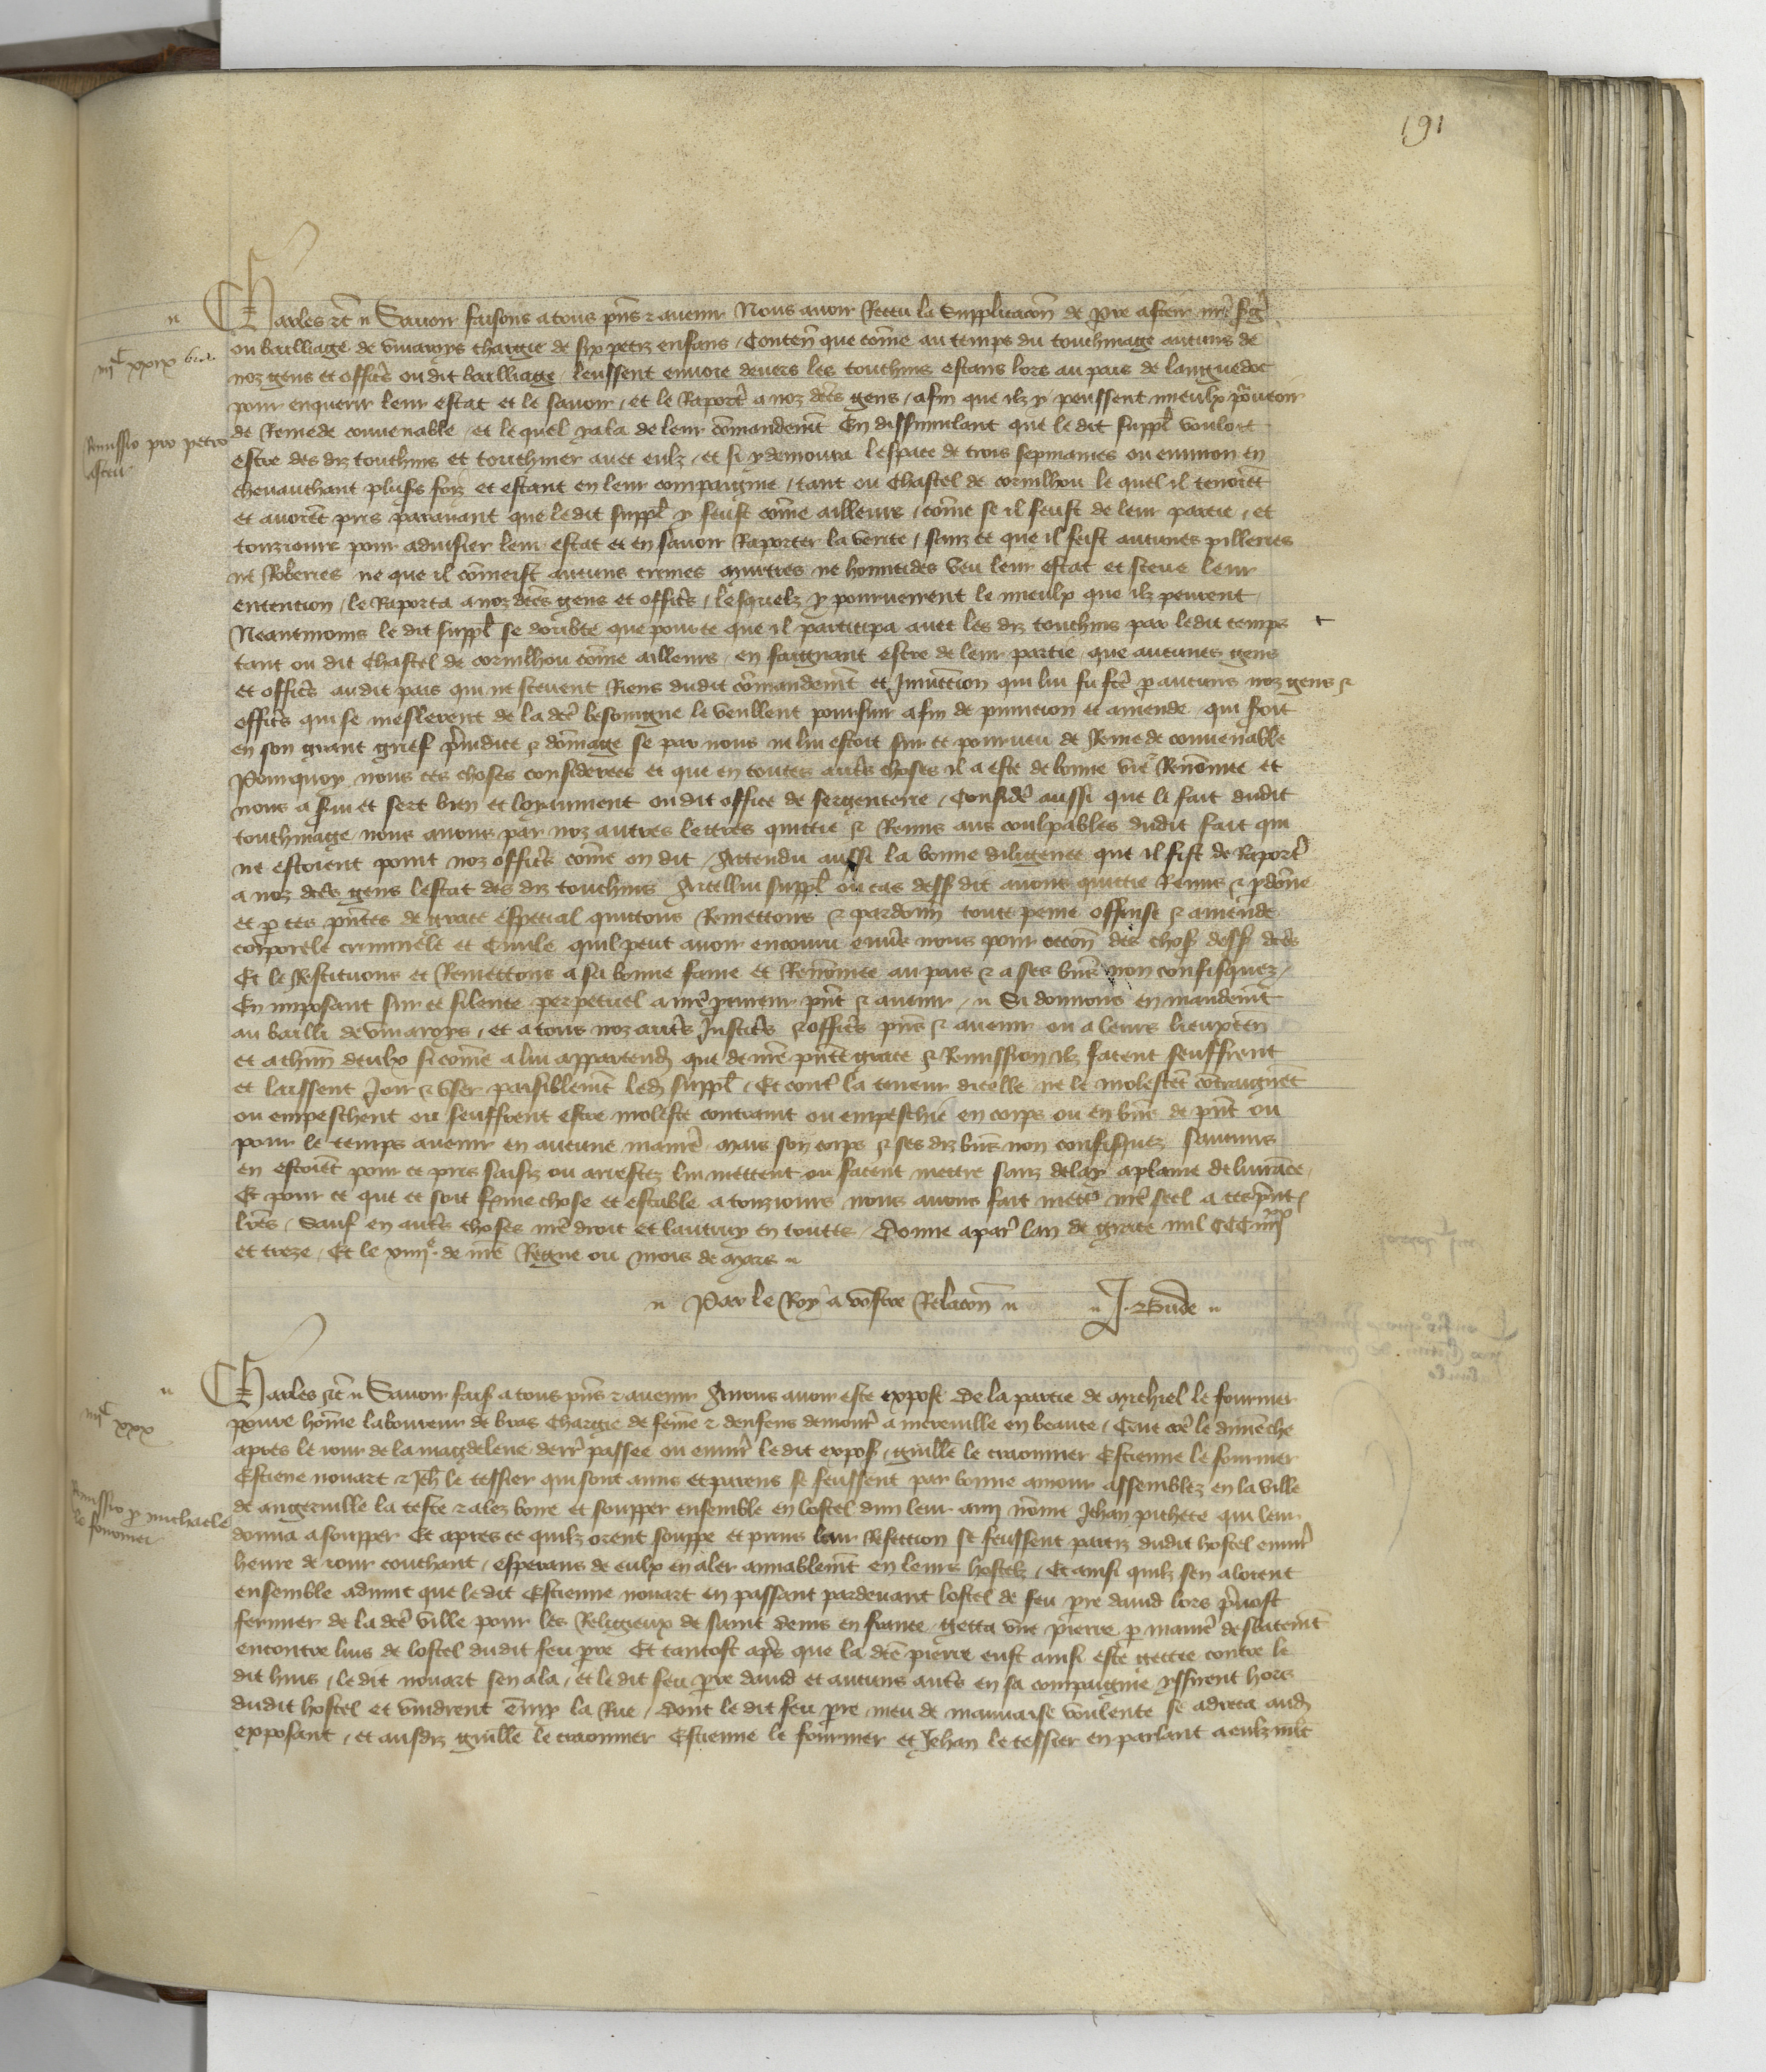 191
Charles etc Savoir faisons a tous pns et avenir Nous avoir Receu la Supplicacon de Pre asteir nre sg
ou bailliage de vivaroys chargie de six petiz enfans Conten que come au temps du touchinage aucuns de
iijC xxix bis
noz gens et offics ou dit bailliage leussent envoie devers les touchins estans lors au pais de languedoc
pour enquerir leur estat et le savoir et le Raporter a noz dces gens afin que ilz y peussent mieulx pourveoir
Remissio pro petro asteir
de Remede convenable et le quel y ala de leur comandement En dissimulant que le dit suppl vouloit
estre des diz touchins et touchiner avec eulz et si y demoura lespace de trois sepmaines ou environ en
chevauchant plusrs foiz et estant en leur compaignie tant ou Chastel de cornilhou le quel il tenoient
et avoient pris paravant que ledit suppl y feust come ailleurs come se il feust de leur partie et
touziours pour advisier leur estat et en savoir Raporter la verite sanz ce que il feist aucunes pilleries
ne Roberies ne que il comeist aucuns crimes murtres ne homicides veu leur estat et sceue leur
entention le Raporta a noz dces gens et offics lesquelz y pourveurent le mieulx que ilz peurent
Neantmoins le dit suppl se doubte que pource que il participa avec les diz touchins par ledit temps
tant ou dit Chastel de cornilhou come ailleurs en faignant estre de leur partie que aucunes gens
et offics audit pais qui ne scevent Riens dudit comandement et Iniunction qui lui fu fce p aucuns noz gens et
offics qui se meslerent de la dce besoingne le veullent poursuir a fin de punicion et amende qui soit
en son grant grief preiudice et domage se par nous ne lui estoit sur ce pourveu de Remede convenable
Pourquoy nous ces choses considerees et que en toutes autrs choses il a este de bonne vie Renommee et
nous a servi et sert bien et loyaument ou dit office de sergenterie Consider aussi que le fait dudit
touchinage nous avons par noz autres lettres quictie et Remis aus coulpables dudit fait qui
ne estoient point noz offics come on dit Attendu aussi la bonne diligence que il fist de Raporter
a noz dces gens lestat des diz touchins A icellui suppl ou cas dessusdit avons quictie Remis et pardonne
et p ces pntes de grace especial quictons Remettons et pardonn toute peine offense et amende
corporele criminele et Civile quil peut avoir encouru envers nous pour occon des choses dess dces
Et le Restituons et Remettons a sa bonne fame et Renommee au pais et a ses biens non confisquez
En imposant sur ce silence perpetuel a nre procureur pnt et avenir Si donnons en mandement
au bailli de vivaroys et a tous noz autrs Justics et offics pns et avenir ou a leurs lieuxten
et a chun deulx si come a lui appartendra que de nre pnte grace et Remission ilz facent seuffrent
et laissent Joir et user paisiblement led suppl Et contre la teneur dicelle ne le molestent contraignent
ou empeschent ou seuffrent estre moleste contraint ou empeschie en corps ou en biens de pnt ou
pour le temps avenir en aucune maniere Mais son corps et ses diz biens non confisquez saucuns
en estoient pour ce pris saisiz ou arrestez lui mettent ou facent mettre sanz delay a plaine delivrance
Et pour ce que ce soit ferme chose et estable a touziours nous avons fait mettre nre seel a ces pntes
lres Sauf en autres choses nre droit et lautruy en toutes Donne a paris lan de grace mil CCC iiijxx
et treze Et le xiiije de nre Regne ou mois de Mars
Par le Roy a vostre Relacon J. Bude
Charles etc Savoir fais a tous pns et avenir A nous avoir este expose De la partie de Michiel le fournier
iijC xxx
povre home laboureur de bras Chargie de feme et denfens demour a Mereville en beauce Que come le dimenche
apres le iour de la magdelene derr passee ou envir ledit expos guille le craonnier Estienne le fournier
Estiene nouart et Jeh le tessier qui sont amis et parens se feussent par bonne amour assemblez en la ville
Remissio p michaele le fournier
de angerville la teste et alez boire et soupper ensemble en lostel dun leur ami nomme Jehan pichete qui leur
donna a soupper Et apres ce quilz orent souppe et prins leur Refection se feussent partiz dudit hostel envir
heure de iour couchant esperans de eulx en aler amiablement en leurs hostelz Et ainsi quilz sen aloient
ensemble advint que ledit Estienne nouart en passant pardevant lostel de feu pre david lors prevost
fermier de la dce ville pour les Religieux de saint denis en france getta une pierre p maniere desbatement
encontre luis de lostel dudit feu pre Et tantost aps que la dce pierre eust ainsi este gectee contre le
dit huis le dit nouart sen ala et le dit feu pre david et aucuns autrs en sa compaignie yssirent hors
dudit hostel et vindrent emmy la Rue dont le dit feu pre meu de mauvaise voulente se adreca aud
exposant et ausdiz guille le craonnier Estienne le fournier et Jehan le tessier en parlant a eulz mlt